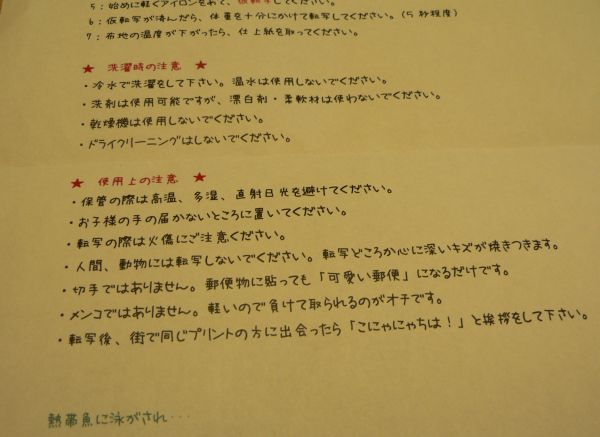 5：始めに軽くアイロンをあて、仮転写してください。
6：仮転写が済んだら、体重を十分にかけて転写してください。(5秒程度)
7：布地の温度が下がったら、仕上紙を取ってください。
★ 洗濯時の注意 ★
・冷水で洗濯をして下さい。温水は使用しないでください。
・洗剤は使用可能ですが、漂白剤・柔軟材は使わないでください。
・乾燥機は使用しないでください。
・ドライクリーニングはしないでください。
★ 使用上の注意 ★
・保管の際は高温、多湿、直射日光を避けてください。
・お子様の手の届かないところに置いてください。
・転写の際は火傷にご注意ください。
・人間、動物には転写しないでください。転写どころか心に深いキズが焼きつきます。
・切手ではありません。郵便物に貼っても「可愛い郵便」になるだけです。
・メンコではありません。軽いので負けて取られるのがオチです。
・転写後、街で同じプリントの方に出会ったら「こにゃにゃちは！」と挨拶をして下さい。
熱帯魚に泳がされ・・・